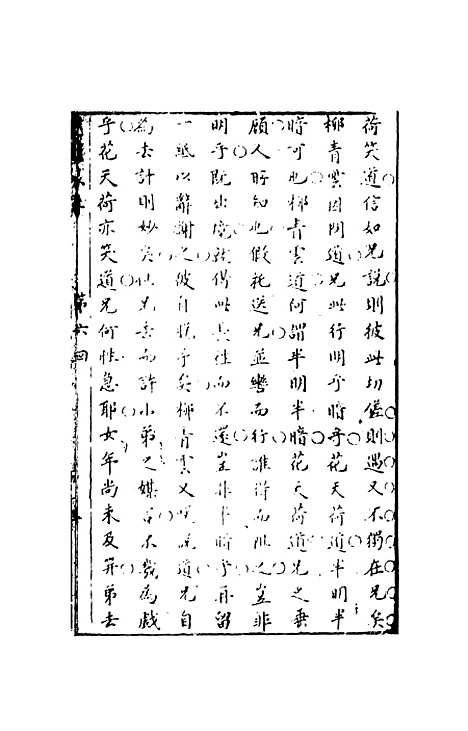 荷笑道信如兄說則彼此切僥則過又不獨在兄矣
柳青雲因問道兄此行明乎暗乎花天荷道半明半
暗可也柳青雲道何謂半明半暗花天荷道兄之垂
顧人所知也假托送兄並轡而行誰得而阻之豈非
明乎既出境就偶此長往而不還豈非半暗乎再留
一紙以辭謝之彼自脫乎矣柳青雲又道兄自
為去計則妙矣但兄去而許小弟之媒言不幾為戲
乎花天荷亦笑道兄何性急耶女年尚未及笄弟去
第六回